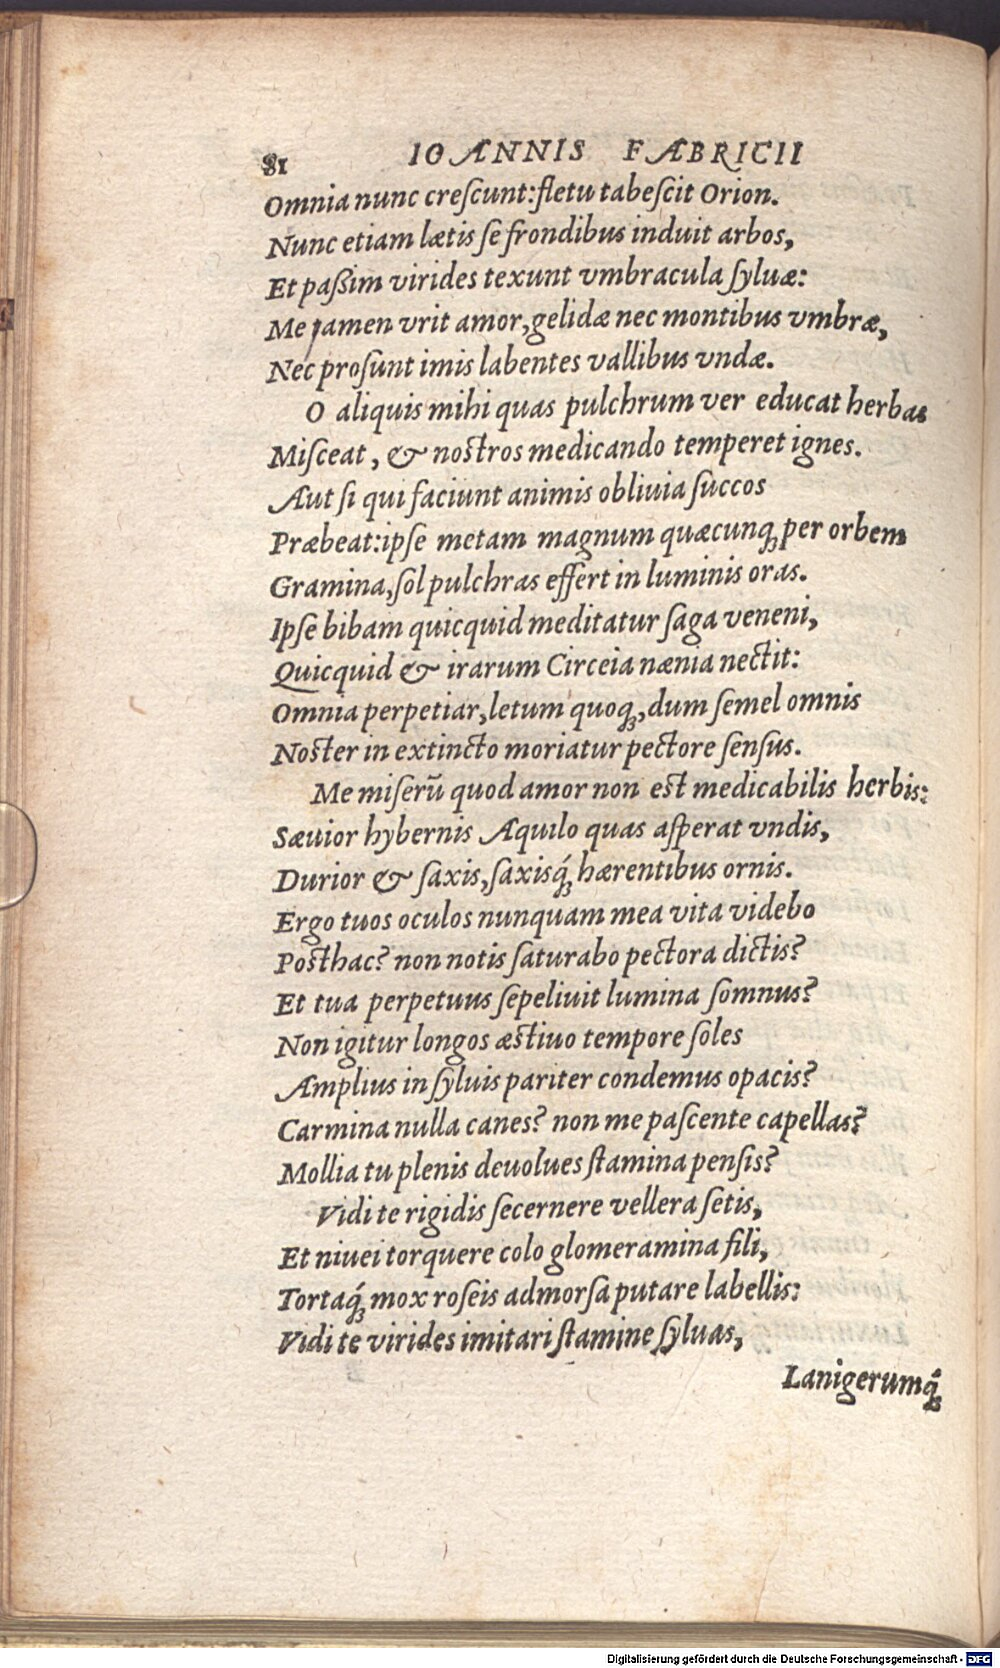 81 IOANNIS FABRICII
Omnia nunc creſcunt: fletu tabeſcit Orion.
Nunc etiam lætis ſe frondibus induit arbos,
Et paßim virides texunt vmbracula ſyluæ:
Me tamen vrit amor, gelidæ nec montibus vmbræ,
Nec proſunt imis labentes vallibus vndæ.
O aliquis mihi quas pulchrum ver educat herbas
Miſceat, & noſtros medicando temperet ignes.
Aut ſi qui faciunt animis obliuia ſuccos
Præbeat: ipſe metam magnum quæcunq; per orbem
Gramina, ſol pulchras effert in luminis oras.
Ipſe bibam quicquid meditatur ſaga veneni,
Quicquid & irarum Circeia nænia nectit:
Omnia perpetiar, letum quoq;, dum ſemel omnis
Noſter in extincto moriatur pectore ſenſus.
Me miſerū quod amor non eſt medicabilis herbis:
Sæuior hybernis Aquilo quas aſperat vndis,
Durior & ſaxis, ſaxisq́; hærentibus ornis.
Ergo tuos oculos nunquam mea vita videbo
Poſthac? non notis ſaturabo pectora dictis?
Et tua perpetuus ſepeliuit lumina ſomnus?
Non igitur longos æſtiuo tempore ſoles
Amplius in ſyluis pariter condemus opacis?
Carmina nulla canes? non me paſcente capellas?
Mollia tu plenis deuolues ſtamina penſis?
Vidi te rigidis ſecernere vellera ſetis,
Et niuei torquere colo glomeramina fili,
Tortaq́; mox roſeis admorſa putare labellis:
Vidi te virides imitari ſtamine ſyluas,
Lanigerumq́;
Digitalisierung gefördert durch die Deutsche Forschungsgemeinschaft - DFG